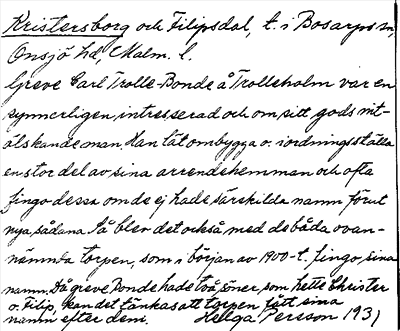 Kristersborg och Filipsdal, t. i Bosarps sn,
Onsjö hd, Malm. l.
Greve Carl Trolle-Bonde å Trolleholm var en
synnerligen intresserad och om sitt gods nit-
älskande man. Han lät ombygga o. iordningställa
en stor del av sina arrendehemman och ofta
fingo dessa om de ej hade särskilda namn förut
nya sådana. Så blev det också med de båda ovan-
nämnda torpen, som i början av 1900-t. fingo sina
namn. Då greve Bonde hade två söner, som hette Christer
o. Filip, kan det tänkas att torpen fått sina
namn efter dem. Helga Persson 1931